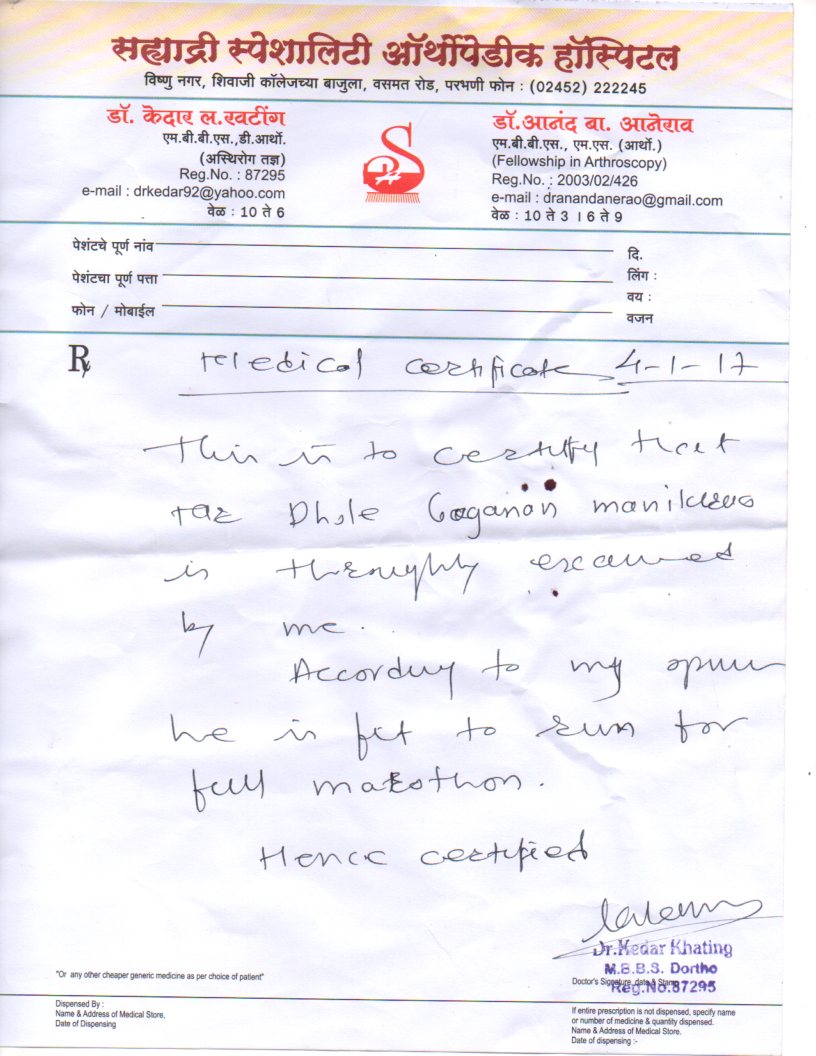 सह्याद्री स्पेशालिटी ऑर्थोपेडीक हॉस्पिटल
विष्णु नगर, शिवाजी कॉलेजच्या बाजुला, वसमत रोड, परभणी फोन : (02452) 222245
डॉ. केदार ल. खटींग
एम.बी.बी.एस.,डी.आर्थो.
(अस्थिरोग तज्ञ)
Reg.No. : 87295
e-mail : drkedar92@yahoo.com
वेळ : 10 ते 6
डॉ.आनंद बा. आनेराव
एम.बी.बी.एस., एम.एस. (आर्थो.)
(Fellowship in Arthroscopy)
Reg.No. : 2003/02/426
e-mail : dranandanerao@gmail.com
वेळ : 10 ते 3 । 6 ते 9
पेशंटचे पूर्ण नांव
पेशंटचा पूर्ण पत्ता
फोन / मोबाईल
दि.
लिंग :
वय :
वजन
Rx Medical certificate 4-1-17
This is to certify that
Mr Dhole Gaganan manikrao
is throughly examined
by me.
According to my
he is fit to run for
full marathon.
Hence certified
Dr.Kedar Khating
M.B.B.S. Dortho
Doctor's Signature, date & Stamp
Reg.No.87295
"Or any other cheaper generic medicine as per choice of patient"
Dispensed By :
Name & Address of Medical Store,
Date of Dispensing
If entire prescription is not dispensed, specify name
or number of medicine & quantity dispensed.
Name & Address of Medical Store.
Date of dispensing :-